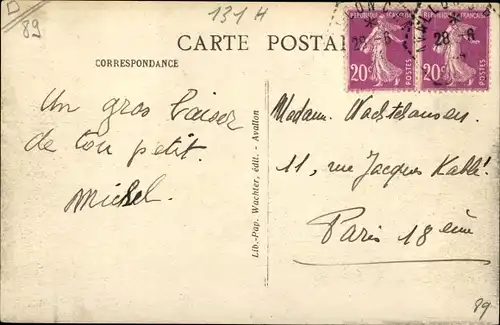 131 H
89
CARTE POSTAL
CORRESPONDANCE
REPUBLIQUE FRANÇAISE
20c POSTES
REPUBLIQUE FRANÇAISE
20c POSTES
28-6
28-6
Un gros baiser
de ton petit.
Michel.
Lib.-Pap. Wachter, édit. - Avallon
Madame
11, rue Jacques Kablé
Paris 18 ème
89